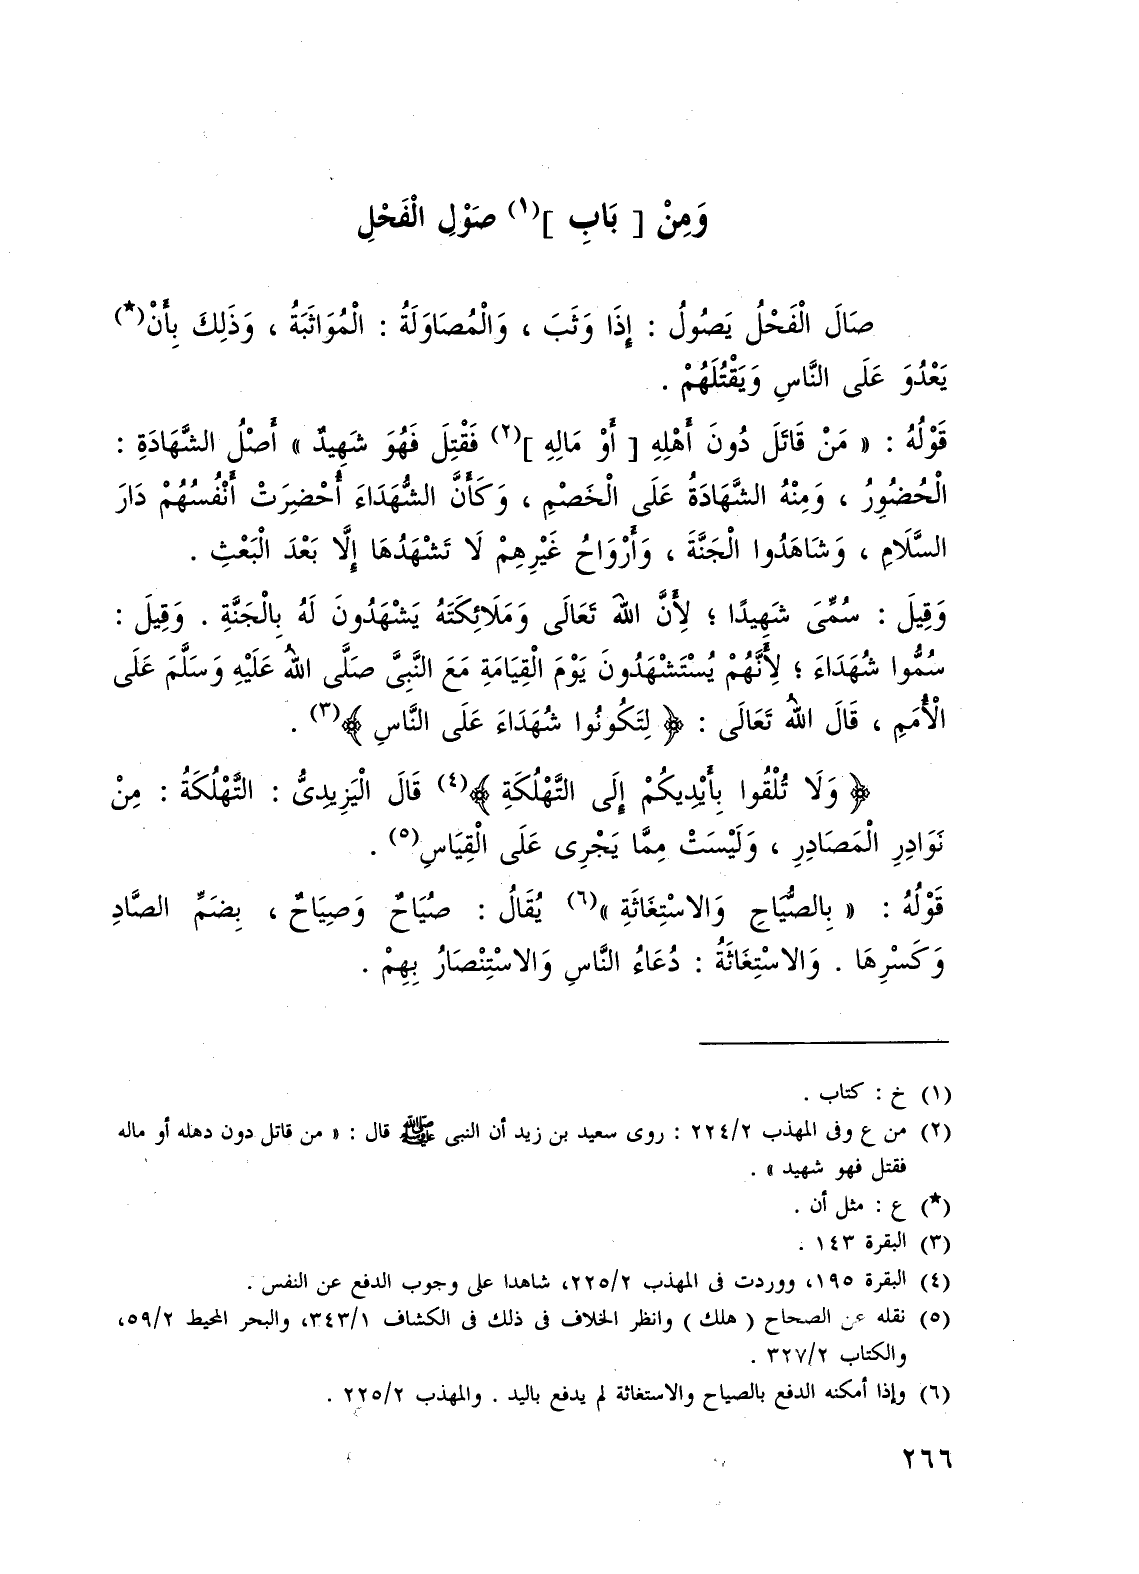 وَمِنْ [ بَابِ ](١) صَوْلِ الْفَحْلِ
صَالَ الْفَحْلُ يَصُولُ : إِذَا وَثَبَ ، وَالْمُصَاوَلَةُ : الْمُوَاثَبَةُ ، وَذَلِكَ بِأَنْ(*)
يَعْدُوَ عَلَى النَّاسِ وَيَقْتُلَهُمْ .
قَوْلُهُ : « مَنْ قَاتَلَ دُونَ أَهْلِهِ [ أَوْ مَالِهِ ](٢) فَقُتِلَ فَهُوَ شَهِيدٌ » أَصْلُ الشَّهَادَةِ :
الْحُضُورُ ، وَمِنْهُ الشَّهَادَةُ عَلَى الْخَصْمِ ، وَكَأَنَّ الشُّهَدَاءَ أُحْضِرَتْ أَنْفُسُهُمْ دَارَ
السَّلَامِ ، وَشَاهَدُوا الْجَنَّةَ ، وَأَرْوَاحُ غَيْرِهِمْ لَا تَشْهَدُهَا إِلَّا بَعْدَ الْبَعْثِ .
وَقِيلَ : سُمِّىَ شَهِيدًا ؛ لِأَنَّ اللهَ تَعَالَى وَمَلَائِكَتَهُ يَشْهَدُونَ لَهُ بِالْجَنَّةِ . وَقِيلَ :
سُمُّوا شُهَدَاءَ ؛ لِأَنَّهُمْ يُسْتَشْهَدُونَ يَوْمَ الْقِيَامَةِ مَعَ النَّبِىِّ صَلَّى اللهُ عَلَيْهِ وَسَلَّمَ عَلَى
الْأُمَمِ ، قَالَ اللهُ تَعَالَى : ﴿ لِتَكُونُوا شُهَدَاءَ عَلَى النَّاسِ ﴾(٣) .
﴿ وَلَا تُلْقُوا بِأَيْدِيكُمْ إِلَى التَّهْلُكَةِ ﴾(٤) قَالَ الْيَزِيدِىُّ : التَّهْلُكَةُ : مِنْ
نَوَادِرِ الْمَصَادِرِ ، وَلَيْسَتْ مِمَّا يَجْرِى عَلَى الْقِيَاسِ(٥) .
قَوْلُهُ : « بِالصُّيَاحِ وَالاسْتِغَاثَةِ »(٦) يُقَالُ : صُيَاحٌ وَصِيَاحٌ ، بِضَمِّ الصَّادِ
وَكَسْرِهَا . وَالاسْتِغَاثَةُ : دُعَاءُ النَّاسِ وَالاسْتِنْصَارُ بِهِمْ .
(١) خ : كتاب .
(٢) من ع وفى المهذب ٢/ ٢٢٤ : روى سعيد بن زيد أن النبى ﷺ قال : « من قاتل دون دهله أو ماله
فقتل فهو شهيد » .
(*) ع : مثل أن .
(٣) البقرة ١٤٣ .
(٤) البقرة ١٩٥، ووردت فى المهذب ٢/ ٢٢٥، شاهدا على وجوب الدفع عن النفس .
(٥) نقله عن الصحاح ( هلك ) وانظر الخلاف فى ذلك فى الكشاف ١/ ٣٤٣، والبحر المحيط ٢/ ٥٩،
والكتاب ٢/ ٣٢٧ .
(٦) وإذا أمكنه الدفع بالصياح والاستغاثة لم يدفع باليد . والمهذب ٢/ ٢٢٥ .
٢٦٦